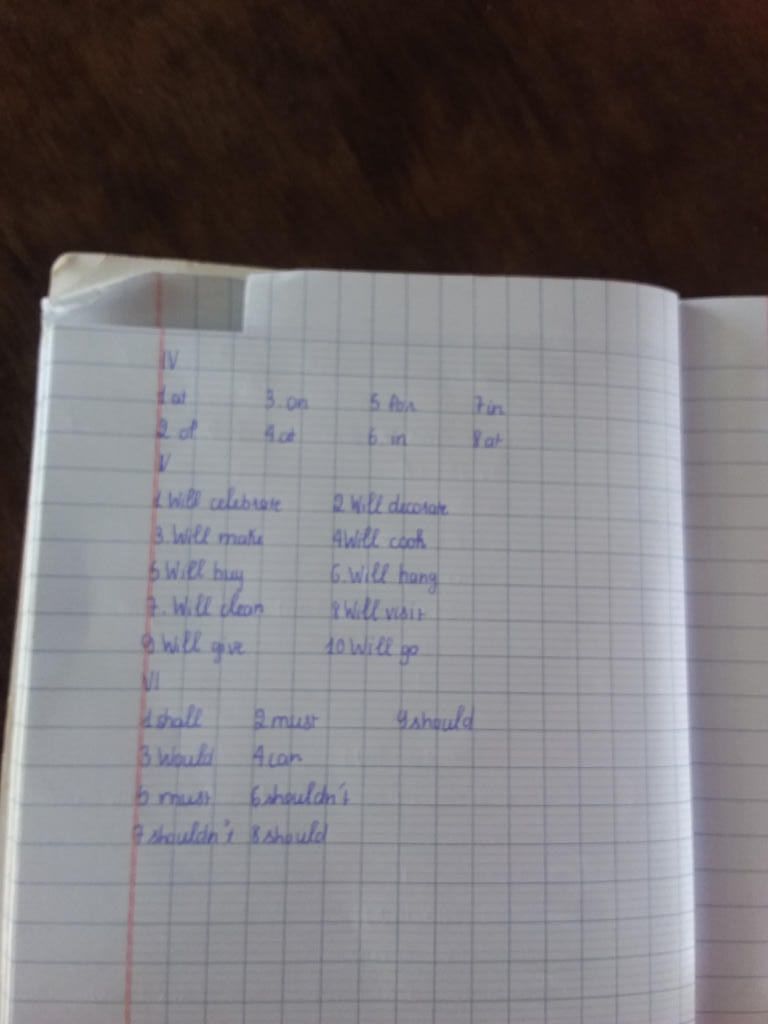 IV
1 at 3. on 5 for 7 in
2 of 4. at 6. in 8 at
V
1 Will celebrate 2 Will decorate
3. Will make 4 Will cook
5 Will buy 6. Will hang
7. Will clean 8 Will visit
9 Will give 10 Will go
VI
1 shall 2 must 9 should
3 Would 4 can
5 must 6 shouldn't
7 shouldn't 8 should